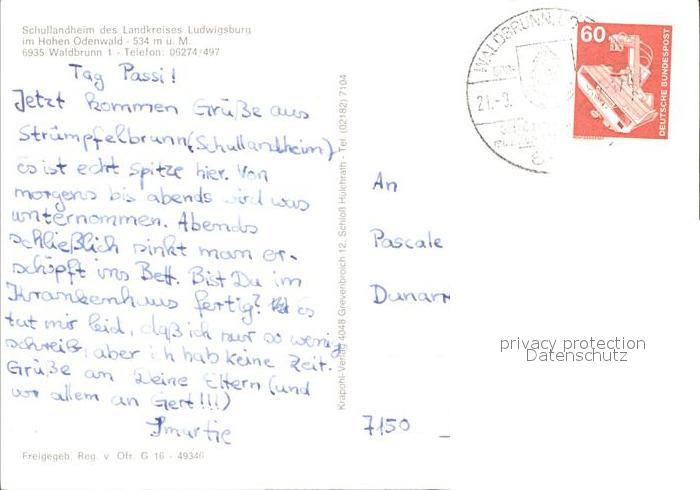 Schullandheim des Landkreises Ludwigsburg
im Hohen Odenwald - 534 m ü. M.
6935 Waldbrunn 1 - Telefon: 06274/497
Tag Passi!
Jetzt kommen Grüße aus
Strümpfelbrunn (Schullandheim)
es ist echt spitze hier. Von
morgens bis abends wird was
unternommen. Abends
schließlich sinkt man er-
schöpft ins Bett. Bist Du im
Krankenhaus fertig? Es
tut mir leid, daß ich nur so wenig
schreib, aber ich hab keine Zeit.
Grüße an Deine Eltern (und
vor allem an Gert!!!)
Smurtie
Freigegeb. Reg. v. Ofr. G 16 - 49346
Krapohl-Verlag 4048 Grevenbroich 12, Schloß Hülchrath - Tel. (02182) 7104
WALDBRUNN,
21.-3.
60
DEUTSCHE BUNDESPOST
An
Pascale
7150
privacy protection
Datenschutz